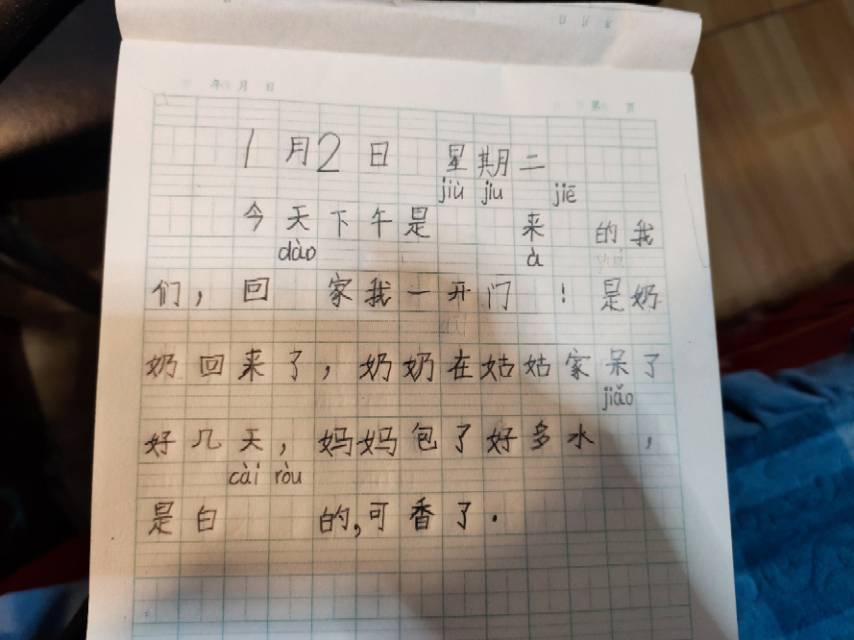 年 月 日 第 页
1月2日 星期二
jiù jiu jiē
今天下午是 来 的我
dào à
们，回 家我一开门 ！是奶
奶回来了，奶奶在姑姑家呆了
jiǎo
好几天，妈妈包了好多水 ，
cài ròu
是白 的，可香了．